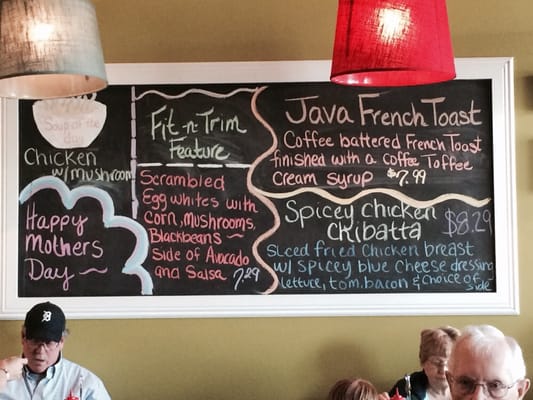 Soup of the
day
Chicken
w/mushroom
Happy
Mothers
Day
Fit-n-Trim
Feature
Scrambled
Egg whites with
corn, mushrooms,
Blackbeans ~
Side of Avocado
and Salsa 7.29
Java French Toast
Coffee battered French Toast
finished with a Coffee Toffee
Cream syrup $7.99
Spicey chicken
cKibatta $8.29
Sliced fried Chicken breast
w/ spicey blue Cheese dressing
lettuce, tom, bacon & choice of
side